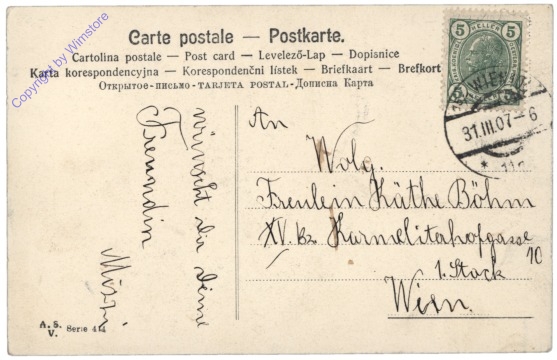 Carte postale — Postkarte.
Cartolina postale — Post card — Levelező-Lap — Dopisnice
Karta korespondencyjna — Korespondenční listek — Briefkaart — Brefkort
Открытое-письмо - TARJETA POSTAL - Дописна Карта
Copyright by Wimstore
5 HELLER 5
5 5
WIEN
31.III.07-6
* 11
wünscht dir Deine
Freundin
Mizzi
An
Wolg.
Freulein Käthe Böhm
XV. Bz Karmeliterhofgasse
10
1. Stock
Wien.
A. S. V. Serie 414